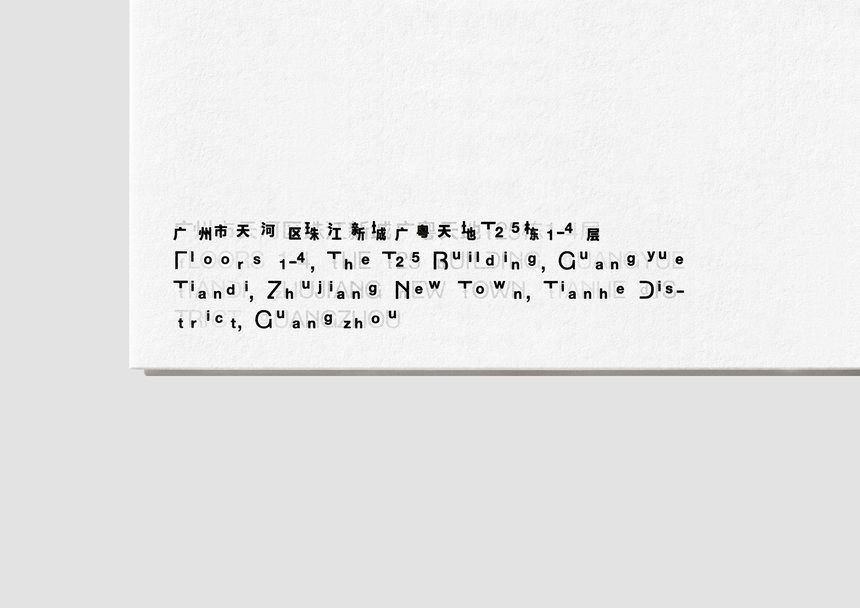 广州市天河区珠江新城广粤天地T25栋1-4层
Floors 1-4, The T25 Building, Guangyue
Tiandi, Zhujiang New Town, Tianhe Dis-
trict, Guangzhou